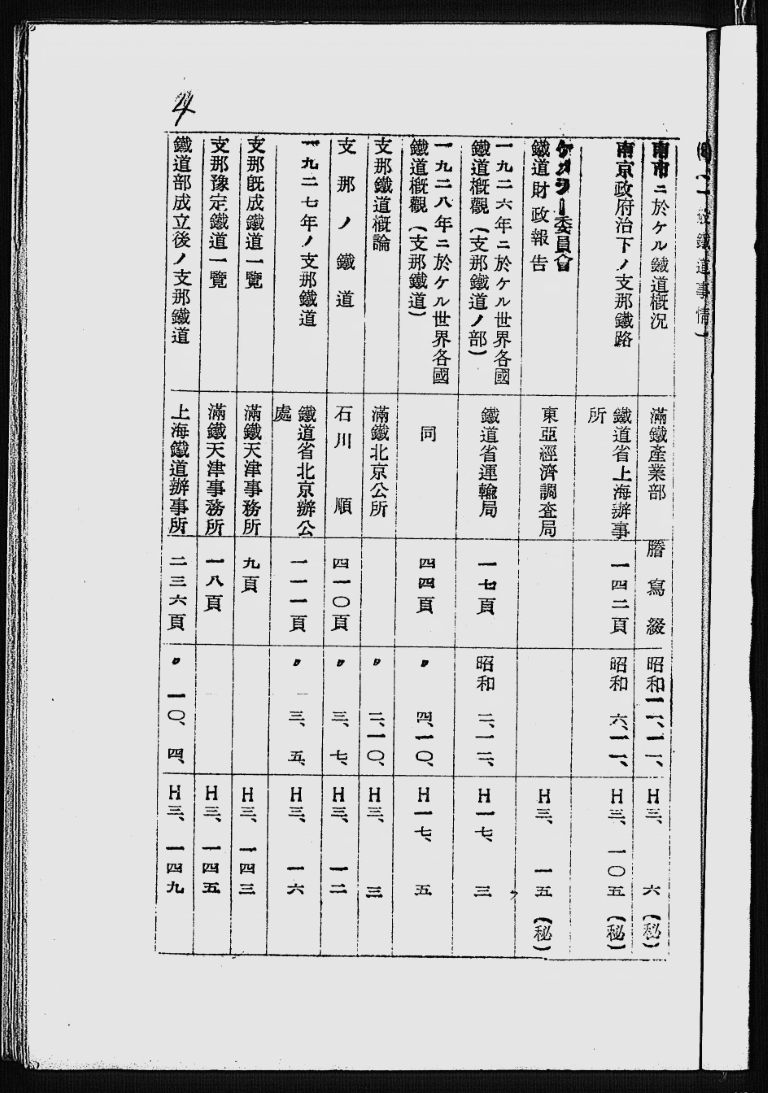 一般鐵道事情)
南市ニ於ケル鐵道概況 滿鐵產業部 謄寫綴 昭和一一、一二、 H三、 六(秘)
南京政府治下ノ支那鐵路 鐵道省上海辦事所 一四二頁 昭和 六、一一、 H三、一〇五(秘)
委員會
鐵道財政報告 東亞經濟調查局 H三、 一五(秘)
一九二六年ニ於ケル世界各國
鐵道概觀(支那鐵道ノ部) 鐵道省運輸局 一七頁 昭和 二、一二、 H一七、 三
一九二八年ニ於ケル世界各國
鐵道概觀(支那鐵道) 同 四四頁 〃 四、一〇、 H一七、 五
支那鐵道概論 滿鐵北京公所 〃 二、一〇、 H三、 三
支那ノ鐵道 石川順 四一〇頁 〃 三、七、 H三、 一二
一九二七年ノ支那鐵道 鐵道省北京辦公處 一一一頁 〃 三、五、 H三、 一六
支那既成鐵道一覽 滿鐵天津事務所 九頁 H三、一四三
支那豫定鐵道一覽 滿鐵天津事務所 一八頁 H三、一四五
鐵道部成立後ノ支那鐵道 上海鐵道辦事所 二三六頁 〃 一〇、四、 H三、一四九
4